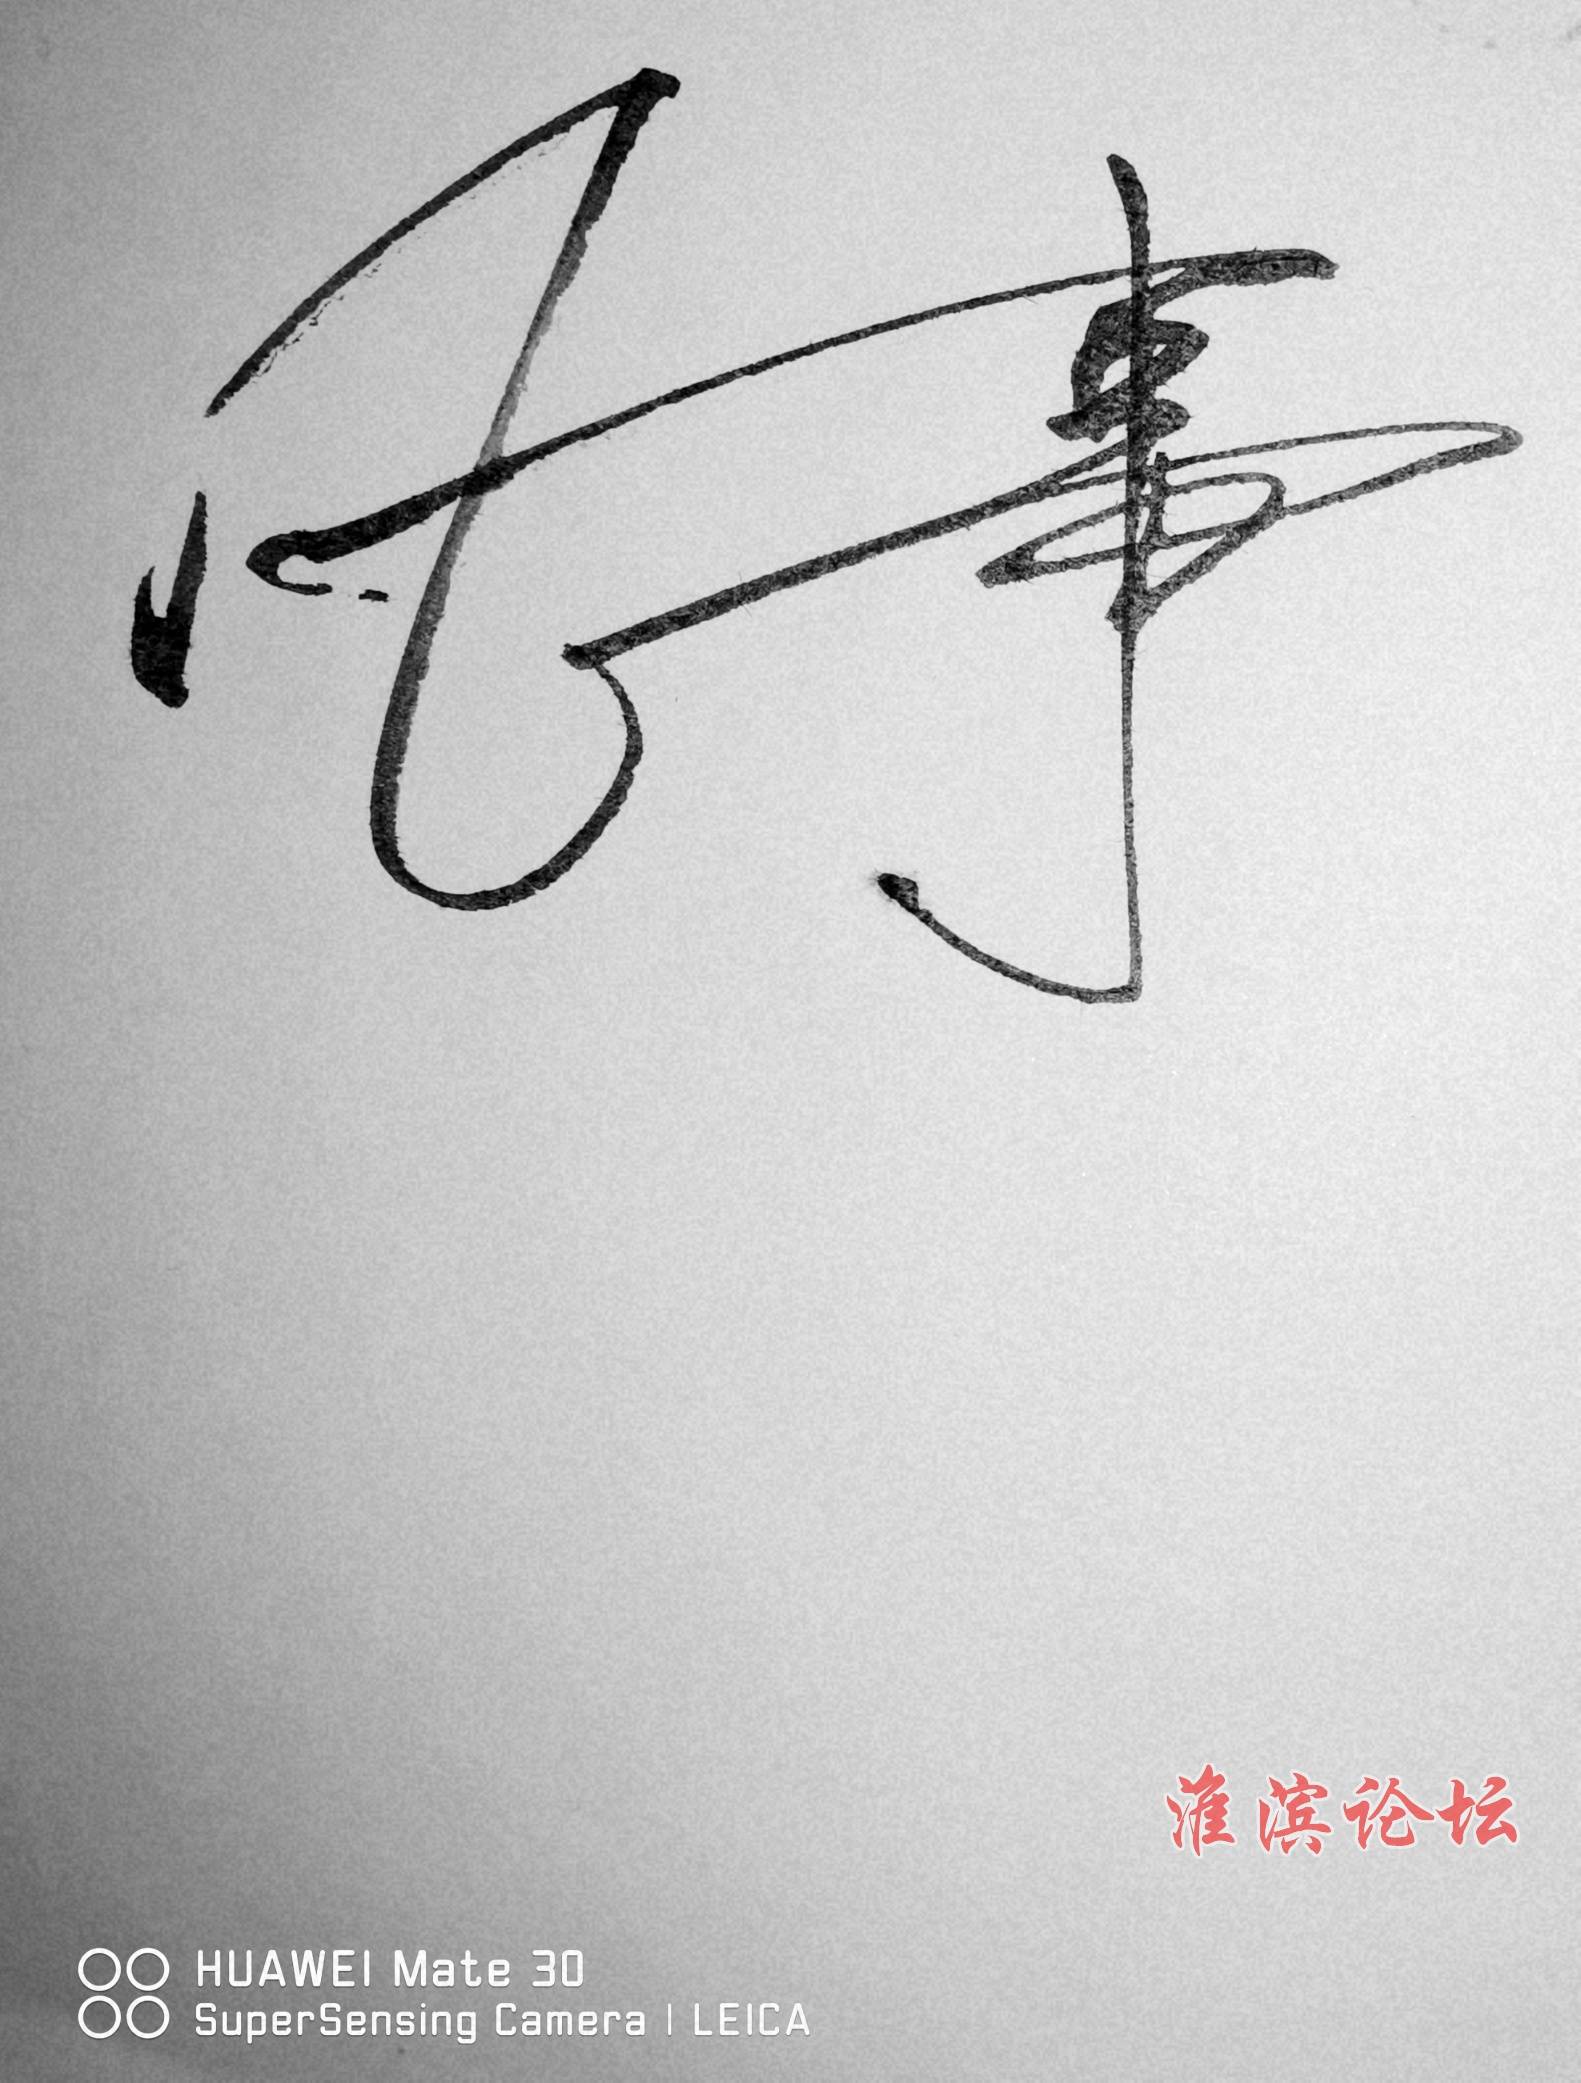 事
淮滨论坛
HUAWEI Mate 30
SuperSensing Camera | LEICA